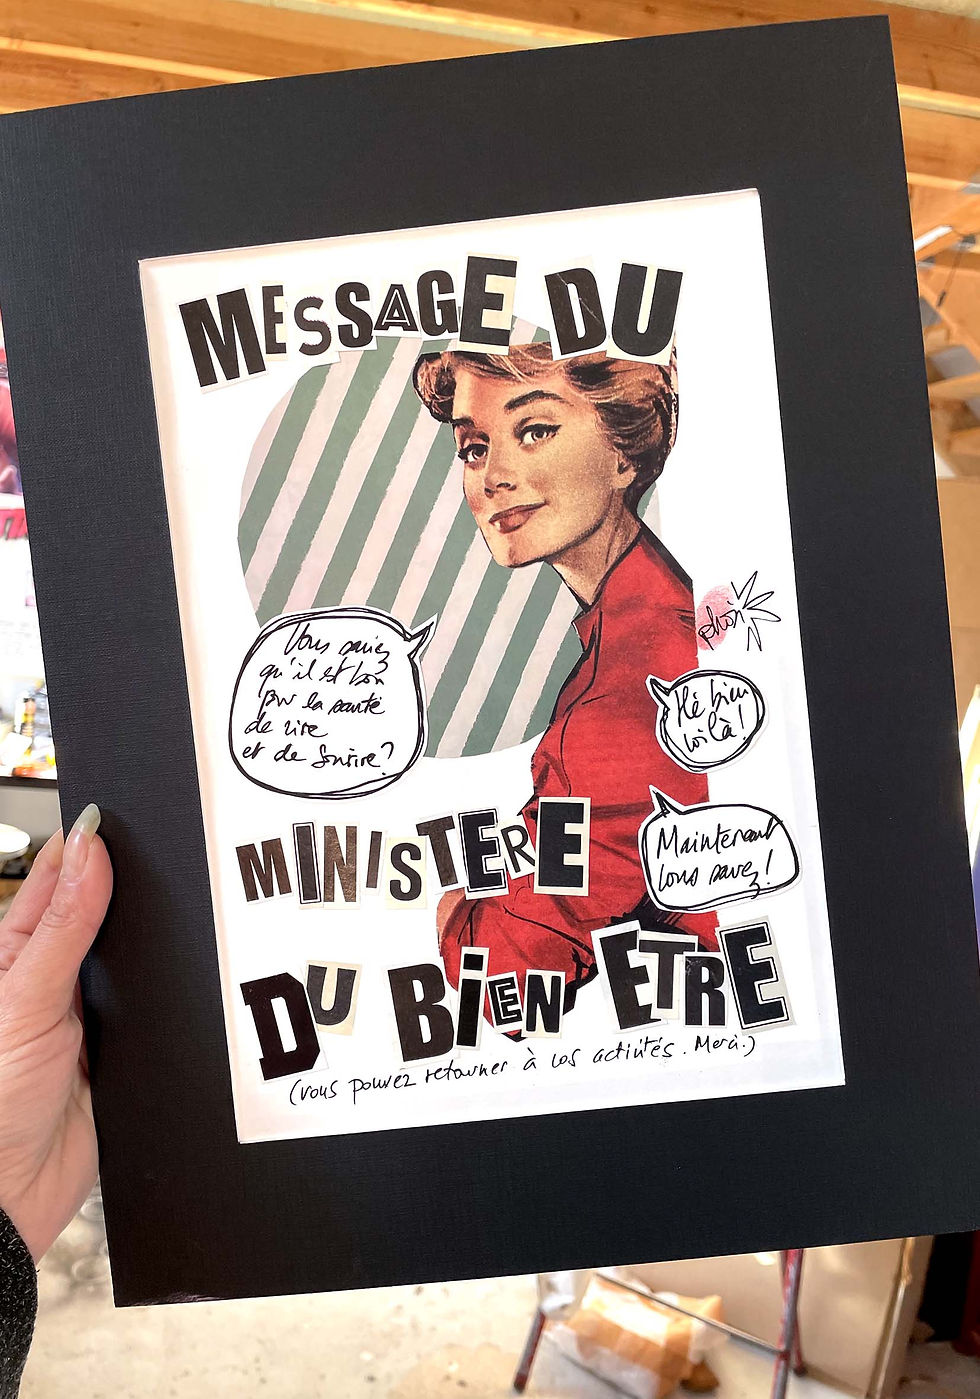 MESSAGE DU
Vous saviez
qu'il est bon
pour la santé
de rire
et de sourire?
phoi
Hé bien
voilà!
Maintenant
vous savez!
MINISTERE
DU BIEN ETRE
(vous pouvez retourner à vos activités. Merci.)